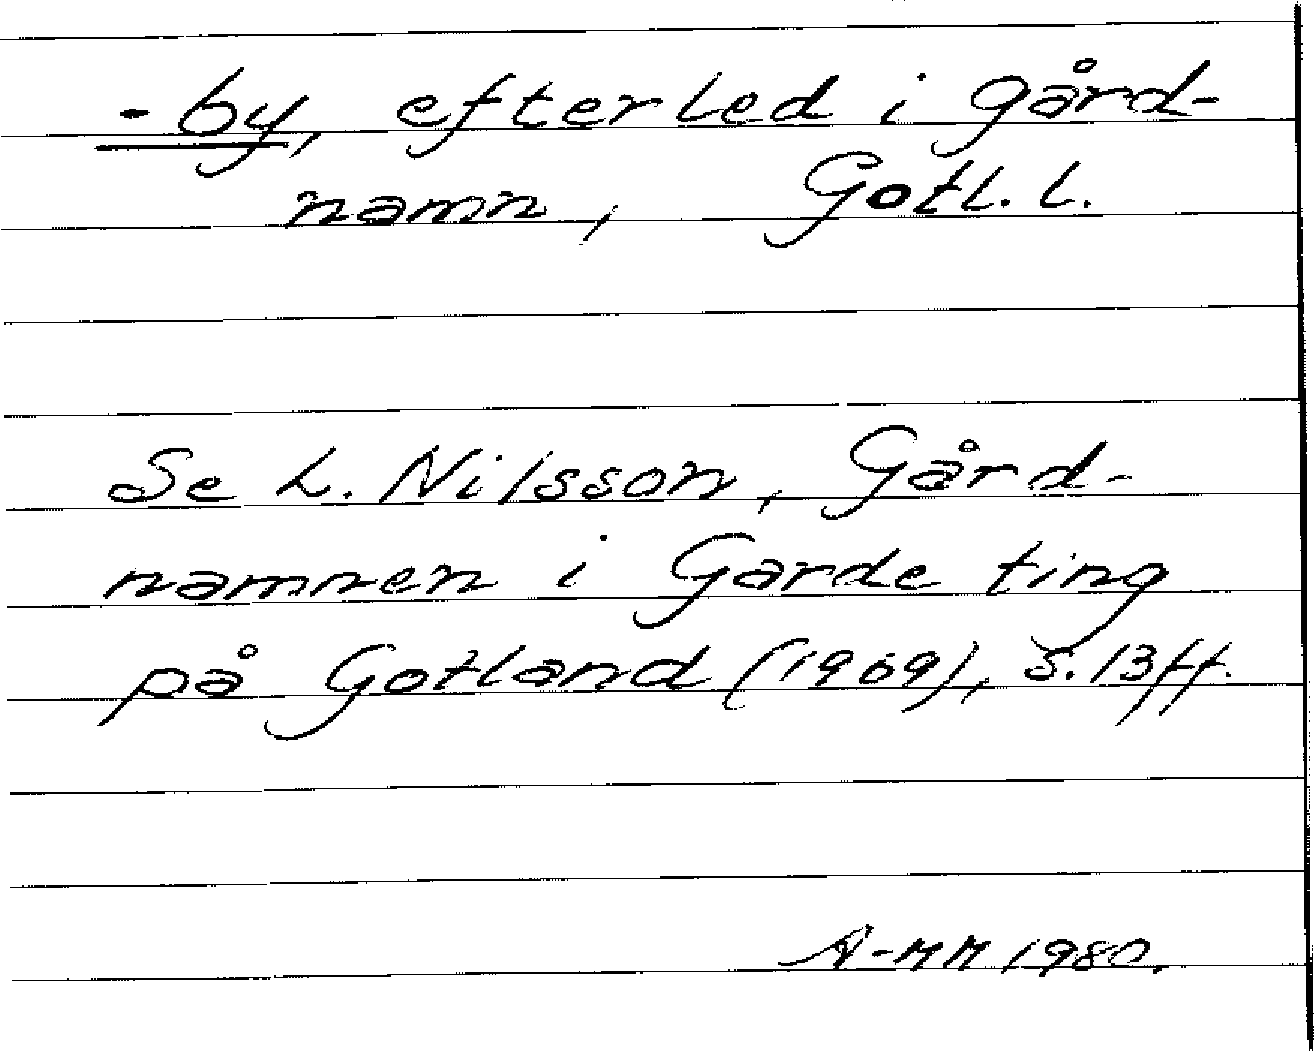 -by, efterled i gård-
namn, Gotl. l.
Se L. Nilsson, Gård-
namnen i Garde ting
på Gotland (1969), s. 13ff.
A-MM 1980.